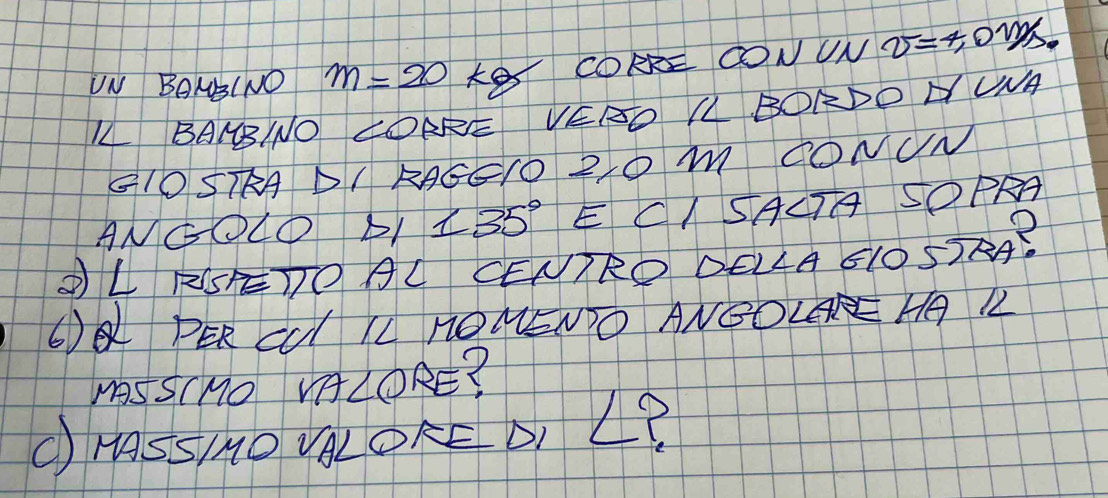 UN BAMBINO m = 20 kg CORRE CON UN v = 4,0 m/s.
IL BAMBINO CORRE VERSO IL BORDO DI UNA
GIOSTRA DI RAGGIO 2,0 m CON UN
ANGOLO DI 135° E CI SALTA SOPRA
a) L RISPETTO AL CENTRO DELLA GIOSTRA?
b) α PER CUI IL MOMENTO ANGOLARE HA IL
MASSIMO VALORE?
C) MASSIMO VALORE DI L?